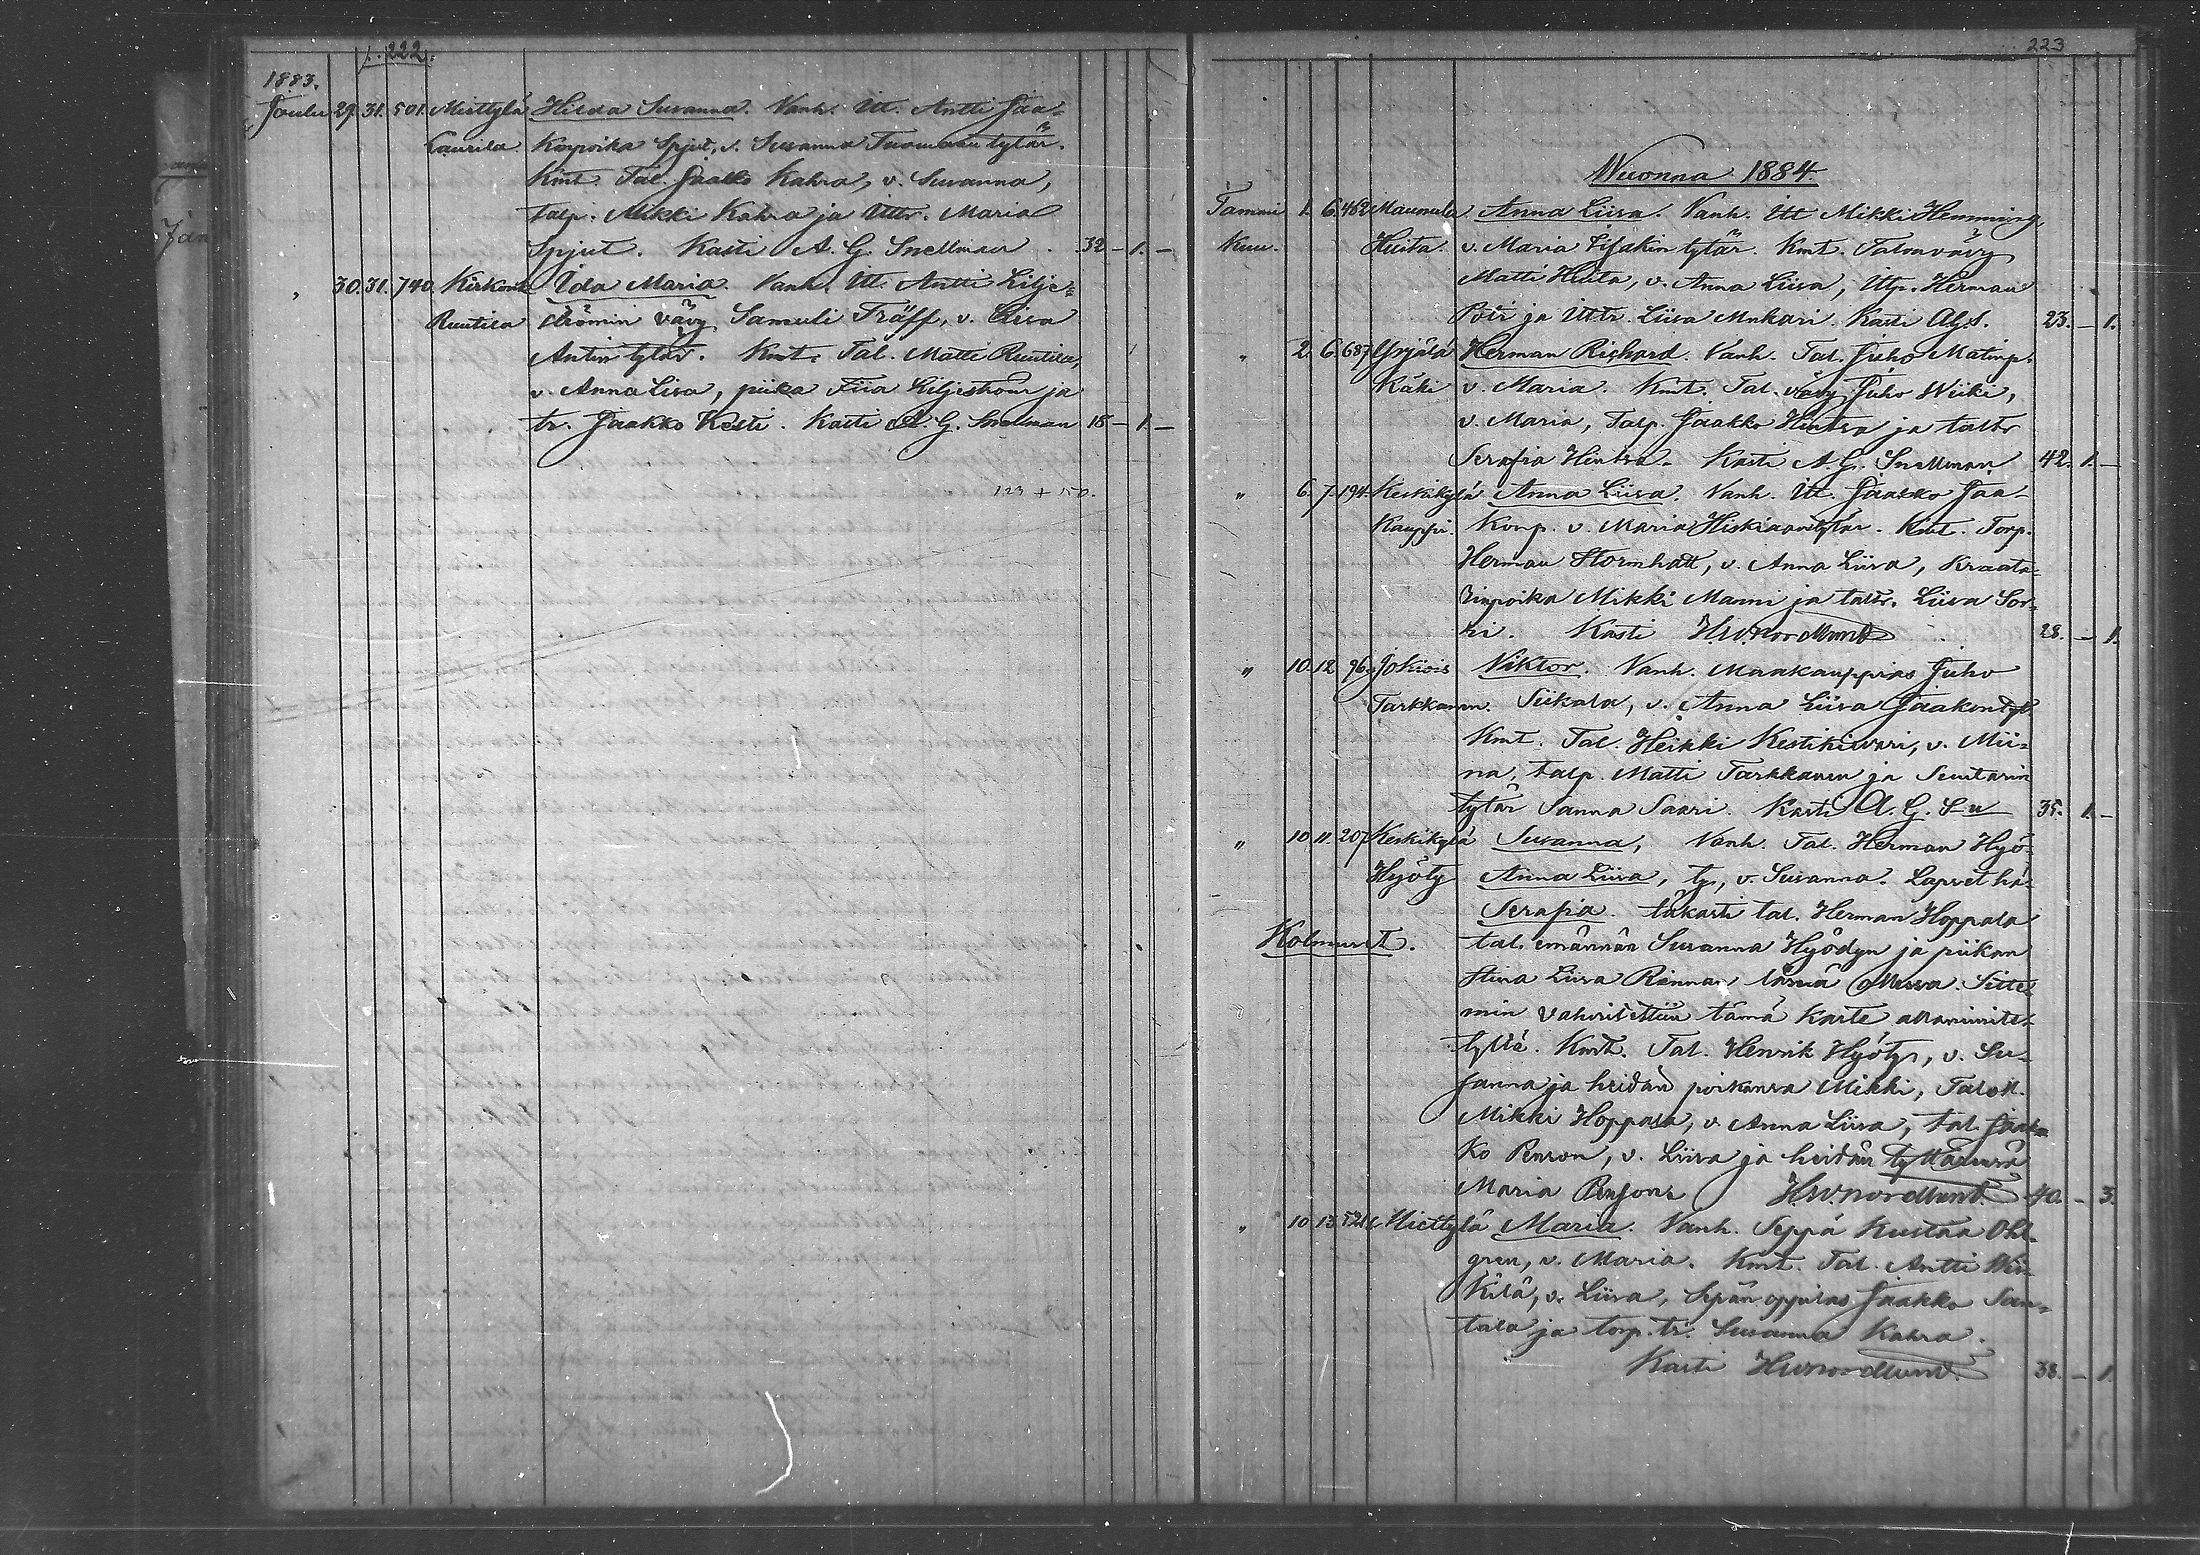 222.
1883.
Joulu 29. 31. 501. Miettylä Hilda Susanna. Vanh. Itt. Antti Jaa-
Laurila. konpoika Spjut, v. Susanna Tuomaan tytär.
Kmt. Tal. Jaakko Kahra, v. Susanna,
talp. Mikki Kahra ja Ittr. Maria
Spjut. Kasti A. G. Snellman. 32 – 1. –
" 30. 31. 740. Kirkonk. Ida Maria. Vanh. Itt. Antti Lilje-
Ruutila strömin vävy Samuli Träff, v. Liisa
Antin tytär. Kmt. Tal. Matti Ruutila,
v. Anna Lisa, piika Fiia Liljeström ja
tr. Jaakko Kesti. Kasti A. G. Snelman 18 – 1. –
123 + 150.
223
Wuonna 1884.
Tammi 1. 6. 482 Maunula Anna Liisa. Vanh. Itt Mikki Hemming,
Kuu. Huita. v. Maria Iisakin tytär. Kmt. Talonvävy
Matti Huita, v. Anna Liisa, Itp. Herman
Potri ja Ittr. Liisa Mukari. Kasti AGS. 23. – 1.
" 2. 6. 687 Yrjälä Herman Richard. Vanh. Tal. Juho Matinp.
Käki v. Maria. Kmt. Tal. vävy Juho Wiiki,
v. Maria, Talp. Jaakko Hintsa ja taltr
Serafia Hintsa. Kasti A. G. Snellman 42. 1. –
" 6. 7. 194. Keskikylä Anna Liisa. Vanh. Itt. Jaakko Jaa-
Kauppi. konp. v. Maria Hiskiaantytär. Kmt. Torp.
Herman Stormhatt, v. Anna Liisa, Kraata-
rinpoika Mikki Manni ja taltr. Liisa Sor-
ri. Kasti HWNordlund 28. – 1.
" 10. 12. 96. Jokiois Viktor. Vanh. Maakauppias Juho
Tarkkanen. Siikala, v. Anna Liisa Jaakontyt.
Kmt. Tal. Heikki Kestikiwari, v. Mii-
na, talp. Matti Tarkkanen ja Senitarin
tytär Sanna Saari. Kasti A. G. S–n 35. 1. –
" 10. 11. 207 Keskikylä Susanna, Vanh. Tal. Herman Hyö-
Hyöty Anna Liisa, ty, v. Susanna. Lapset hä-
Serafia. täkasti tal. Herman Hoppala
Kolmuset. tal. emännän Susanna Hyödyn ja piikan
Stina Liisa Rannan läsnä ollessa. Sitte-
min vahvistettiin tämä kaste allanimite-
tyllä. Kmt. Tal. Henrik Hyöty, v. Su-
sanna ja heidän poikansa Mikki, Talok.
Mikki Hoppala, v. Anna Liisa, tal. Jaak-
ko Penson, v. Liisa ja heidän tyttärensä
Maria Penson. HWNordlund. 40. – 3.
" 10. 13. 521 Miettylä Maria. Vanh. Seppä Kustaa Ohl-
gren, v. Maria. Kmt. Tal. Antti
kilä, v. Liisa, Sepän oppilas Jaakko San-
tala ja torp. tr. Susanna Kahra.
Kasti HWNordlund. 38. – 1.